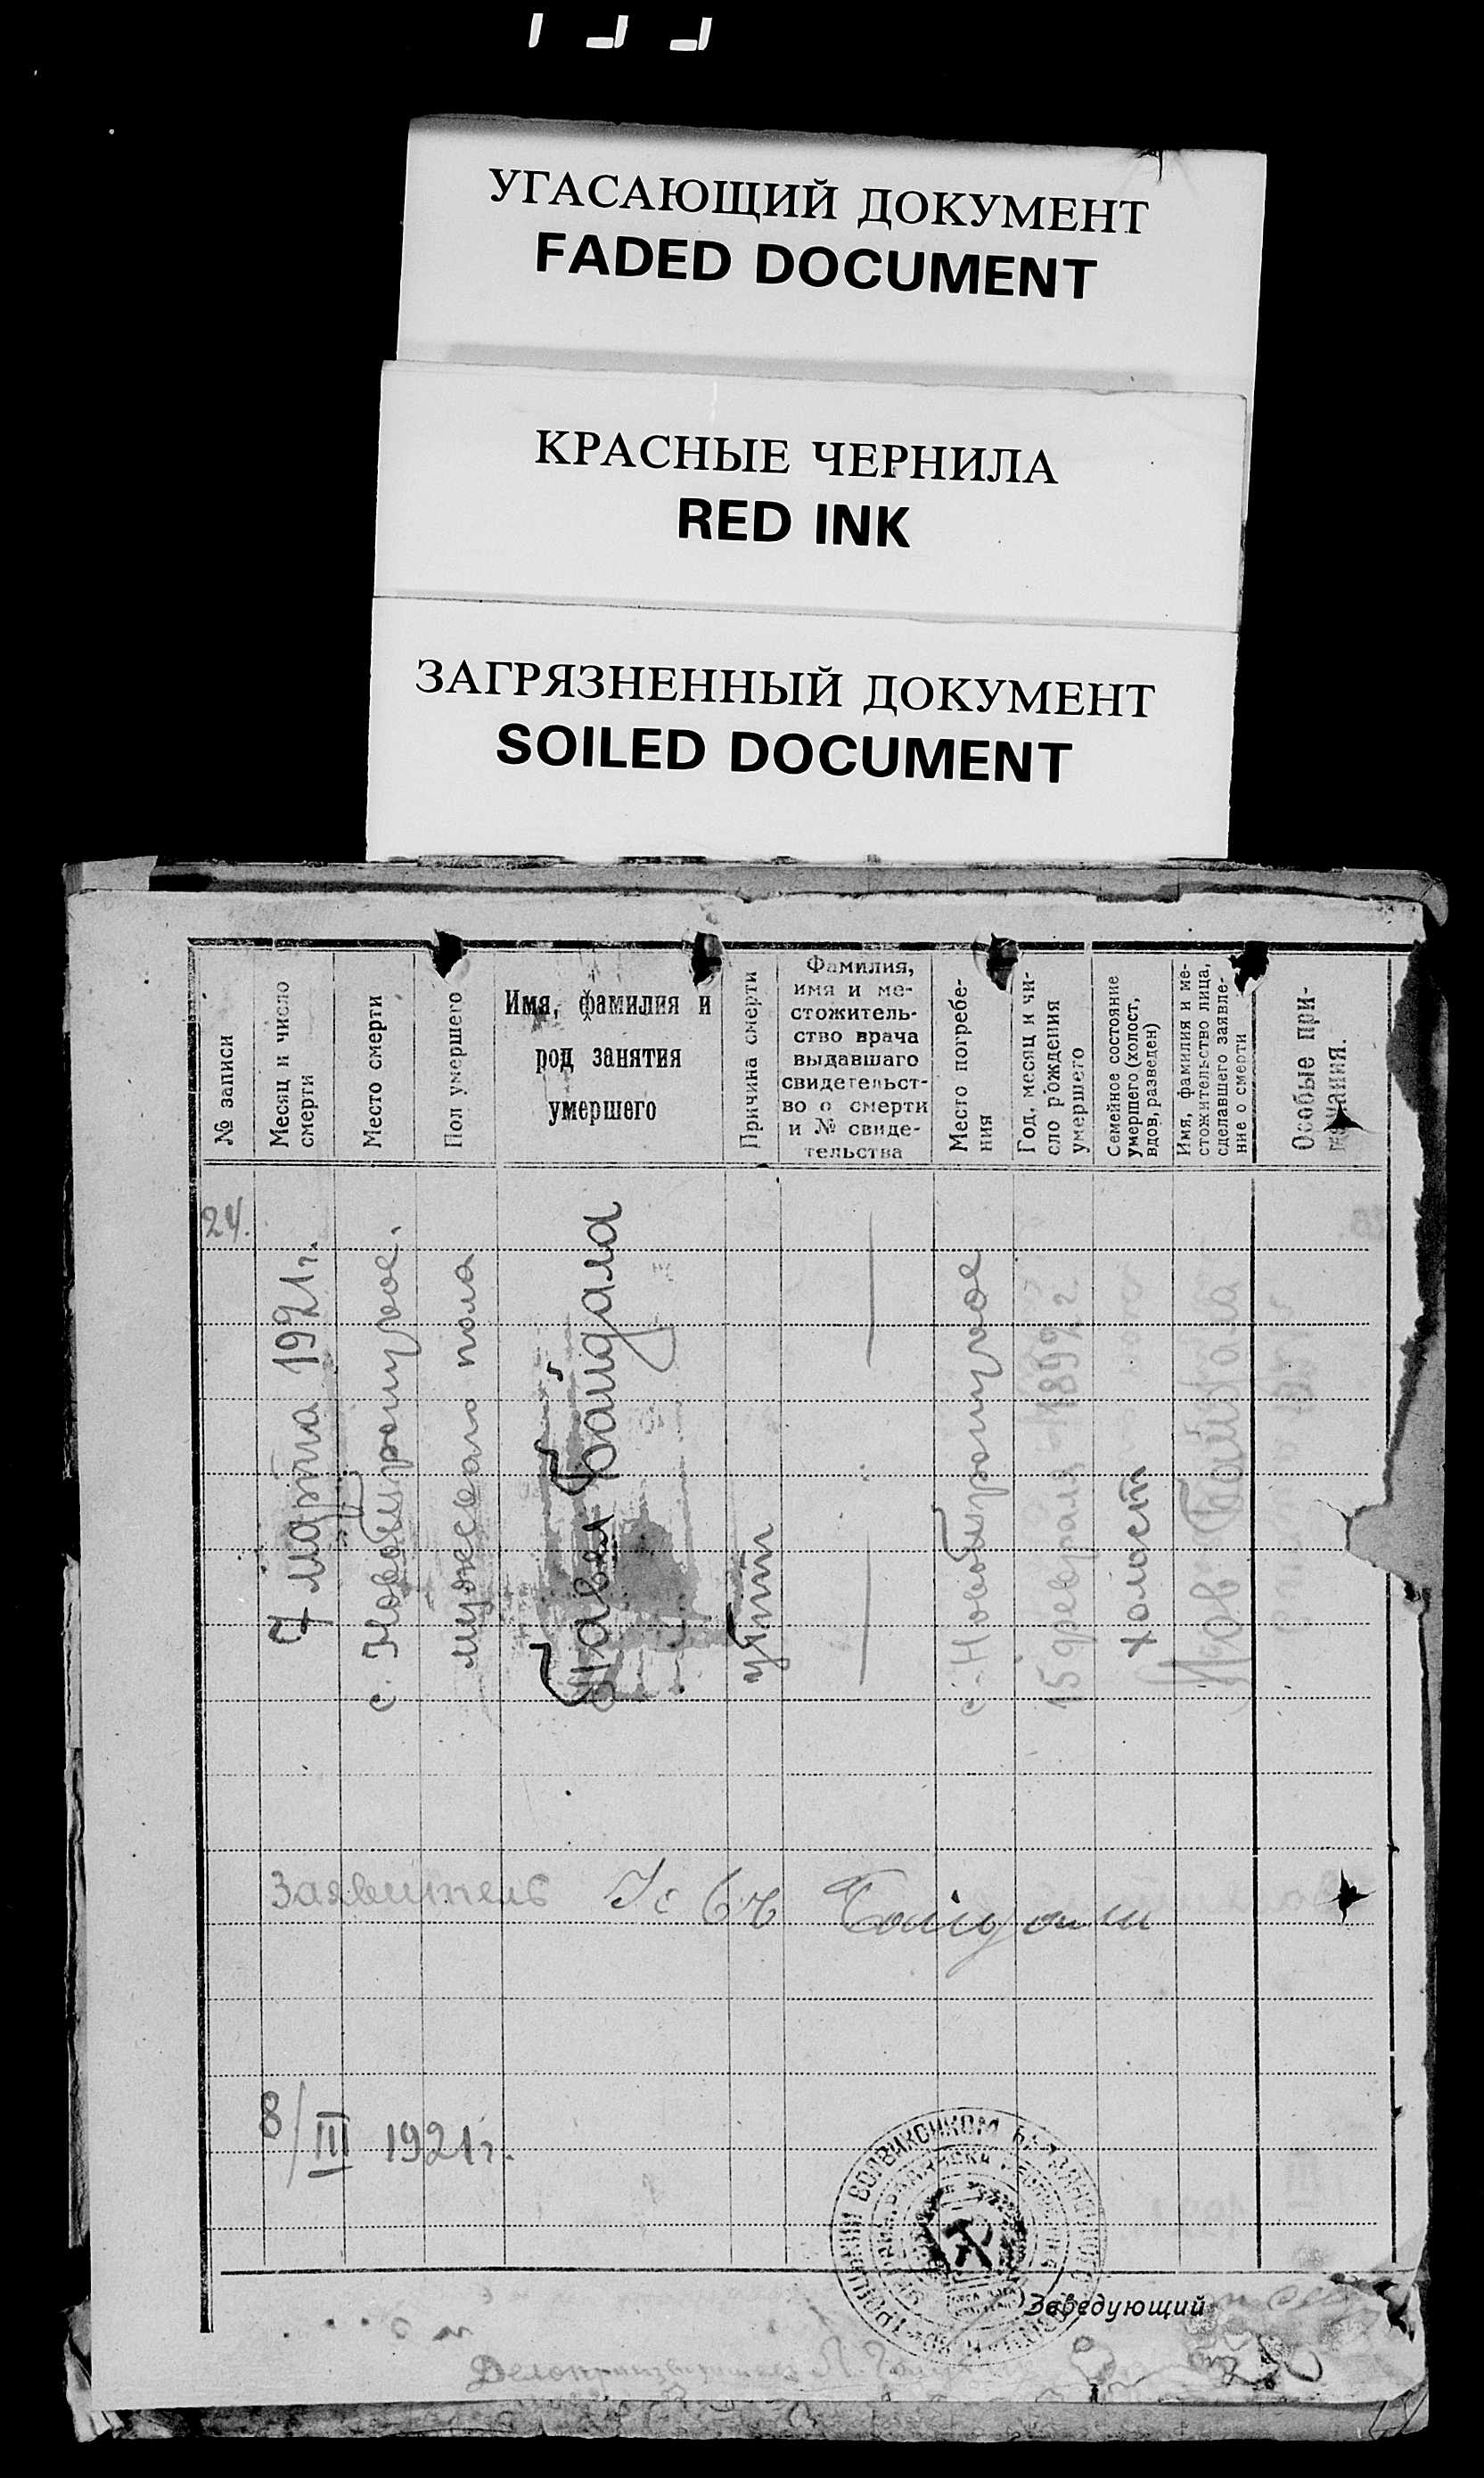 УГАСАЮЩИЙ ДОКУМЕНТ
FADED DOCUMENT
КРАСНЫЕ ЧЕРНИЛА
RED INK
ЗАГРЯЗНЕННЫЙ ДОКУМЕНТ
SOILED DOCUMENT
№ записи
Месяц и число
смерти
Место смерти
Пол умершего
Имя, фамилия и
род занятия
умершего
Причина смерти
Фамилия,
имя и ме-
стожитель-
ство врача
выдавшаго
свидетельст-
во о смерти
и № свиде-
тельства
Место погребе-
ния
Год, месяц и чи-
сло рождения
умершего
Семейное состояние
умершего (холост,
вдов, разведен)
Имя, фамилия и ме-
стожительство лица,
сделавшего заявле-
ние о смерти
Особые при-
мечания.
24.
7 марта 1921 г.
с. Новотроицкое.
мужского пола
Павел Байдала
убит
с. Новотроицкое
15 февраля 1899 г.
холост
Байдала
Заявитель
8/III 1921 г.
Заведующий
Делопроизводитель